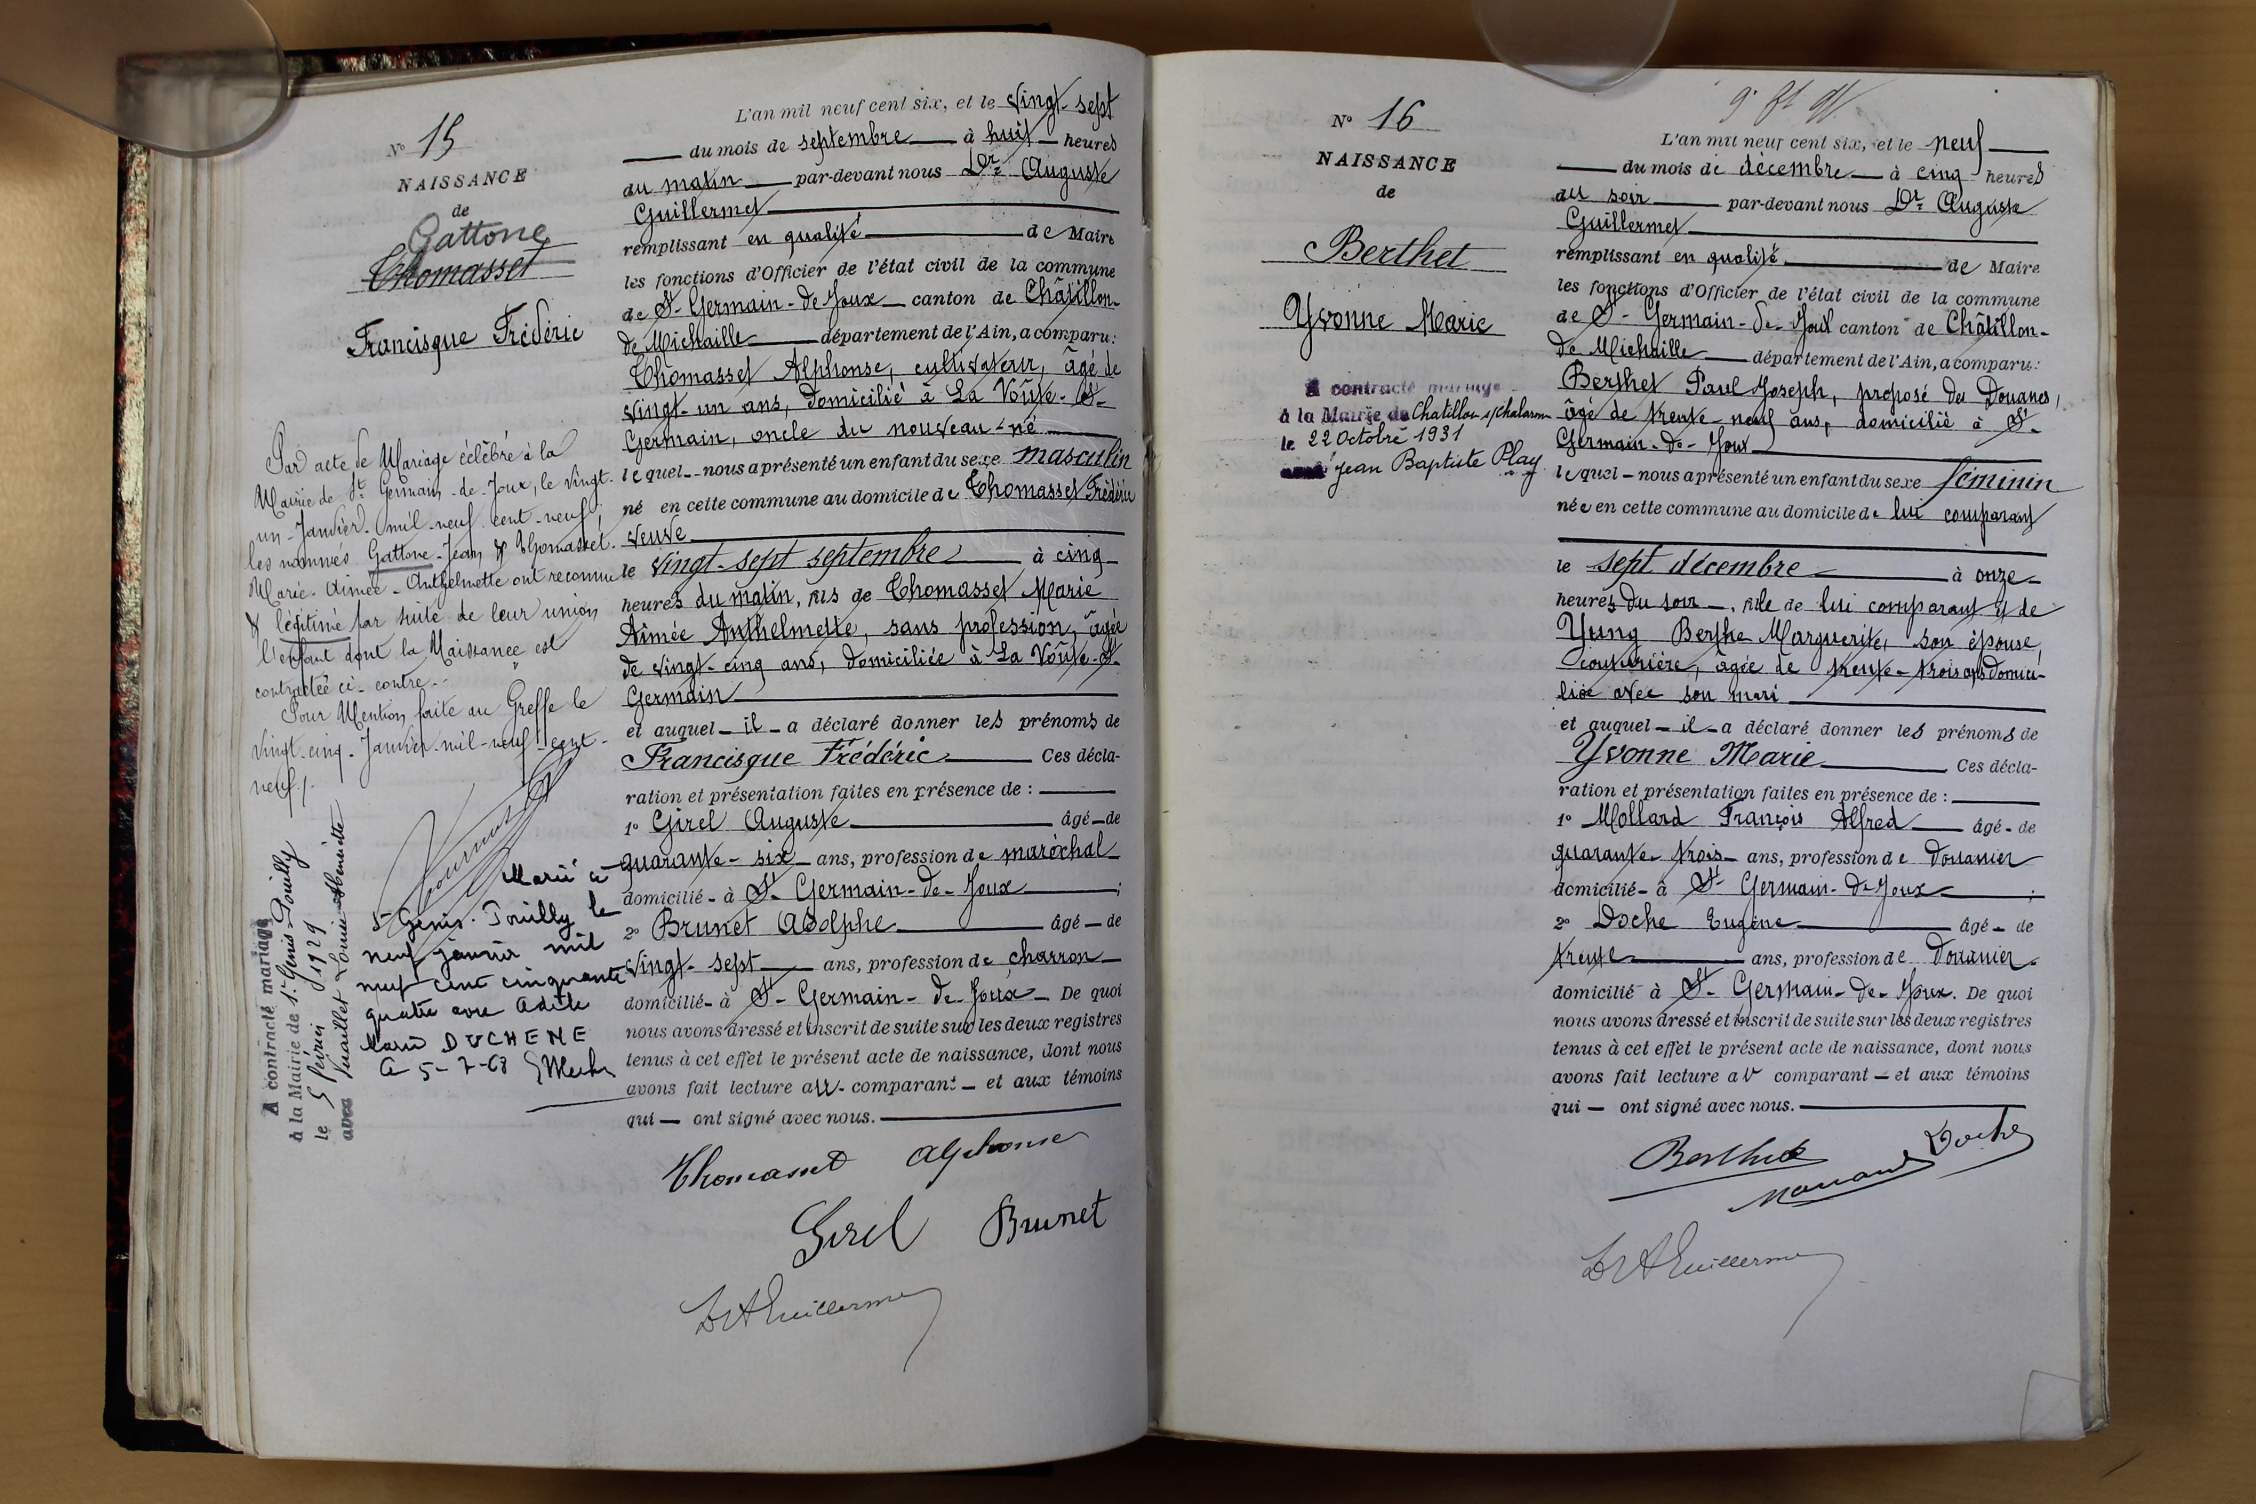 N° 15
NAISSANCE
de
Gattone
Thomasset
Francisque Frédéric
Par acte de Mariage célébré à la
Mairie de St Germain-de-Joux, le vingt-
un-Janvier-mil-neuf-cent-neuf,
les nommés Gattone-Jean & Thomasset
Marie-Aimée-Anthelmette ont reconnu
& légitimé par suite de leur union,
l'enfant dont la Naissance est
contractée ci-contre.-
Pour Mention faite au Greffe le
vingt-cinq-Janvier-mil-neuf-cent-
neuf./.
Marié à
St Genis-Pouilly le
neuf janvier mil
neuf cent cinquante
quatre avec Adèle
Marie DUCHENE
Le 5-7-68
A contracté mariage
à la Mairie de St Genis-Pouilly
le 5 février 1929
avec Vuaillet Louise
L'an mil neuf cent six, et le vingt-sept
du mois de septembre à huit heures
du matin par-devant nous Dr Auguste
Guillermet
remplissant en qualité de Maire
les fonctions d'Officier de l'état civil de la commune
de St-Germain-de-Joux canton de Châtillon-
de Michaille département de l'Ain, a comparu:
Thomasset Alphonse, cultivateur, âgé de
vingt-un ans, domicilié à La Voûte-St-
Germain, oncle du nouveau-né
lequel nous a présenté un enfant du sexe masculin
né en cette commune au domicile de Thomasset Frédéric
veuve
le vingt-sept septembre à cinq
heures du matin, fils de Thomasset Marie
Aimée Anthelmette, sans profession, âgée
de vingt-cinq ans, domiciliée à La Voûte-St-
Germain
et auquel il a déclaré donner les prénoms de
Francisque Frédéric Ces décla-
ration et présentation faites en présence de :
1° Girel Auguste âgé de
quarante-six ans, profession de maréchal
domicilié à St-Germain-de-Joux ;
2° Brunet Adolphe âgé de
vingt-sept ans, profession de charron
domicilié à St-Germain-de-Joux De quoi
nous avons dressé et inscrit de suite sur les deux registres
tenus à cet effet le présent acte de naissance, dont nous
avons fait lecture au comparant et aux témoins
qui ont signé avec nous.
Thomasset Alphonse
Girel Brunet
Dr A Guillermet
N° 16
NAISSANCE
de
Berthet
Yvonne Marie
A contracté mariage
à la Mairie de Chatillon s/Chalaronne
le 22 Octobre 1931
avec Jean Baptiste Play
L'an mil neuf cent six, et le neuf
du mois de décembre à cinq heures
du soir par-devant nous Dr Auguste
Guillermet
remplissant en qualité de Maire
les fonctions d'Officier de l'état civil de la commune
de St-Germain-de-Joux canton de Châtillon-
de Michaille département de l'Ain, a comparu:
Berthet Paul Joseph, préposé des Douanes,
âgé de trente-neuf ans, domicilié à St-
Germain-de-Joux
lequel nous a présenté un enfant du sexe féminin
née en cette commune au domicile de lui comparant
le sept décembre à onze
heures du soir, fille de lui comparant et de
Yung Berthe Marguerite, son épouse,
couturière, âgée de trente-trois ans domici-
liée avec son mari
et auquel il a déclaré donner les prénoms de
Yvonne Marie Ces décla-
ration et présentation faites en présence de :
1° Mollard François Alfred âgé de
quarante-trois ans, profession de douanier
domicilié à St-Germain-de-Joux ;
2° Doche Eugène âgé de
trente ans, profession de Douanier
domicilié à St-Germain-de-Joux. De quoi
nous avons dressé et inscrit de suite sur les deux registres
tenus à cet effet le présent acte de naissance, dont nous
avons fait lecture au comparant et aux témoins
qui ont signé avec nous.
Berthet Doche
Mollard
Dr A Guillermet